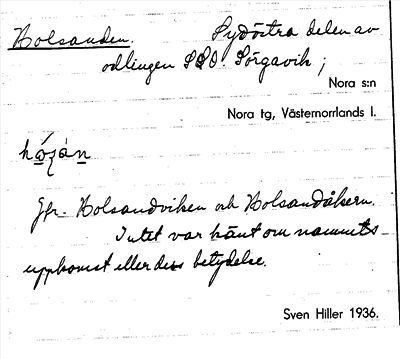 Holsanden. Sydöstra delen av
odlingen SSO. Sörgavik;
Nora s:n
Nora tg, Västernorrlands l.
Jfr. Holsandviken och Holsandåkern.
Intet var känt om namnets
uppkomst eller dess betydelse.
Sven Hiller 1936.